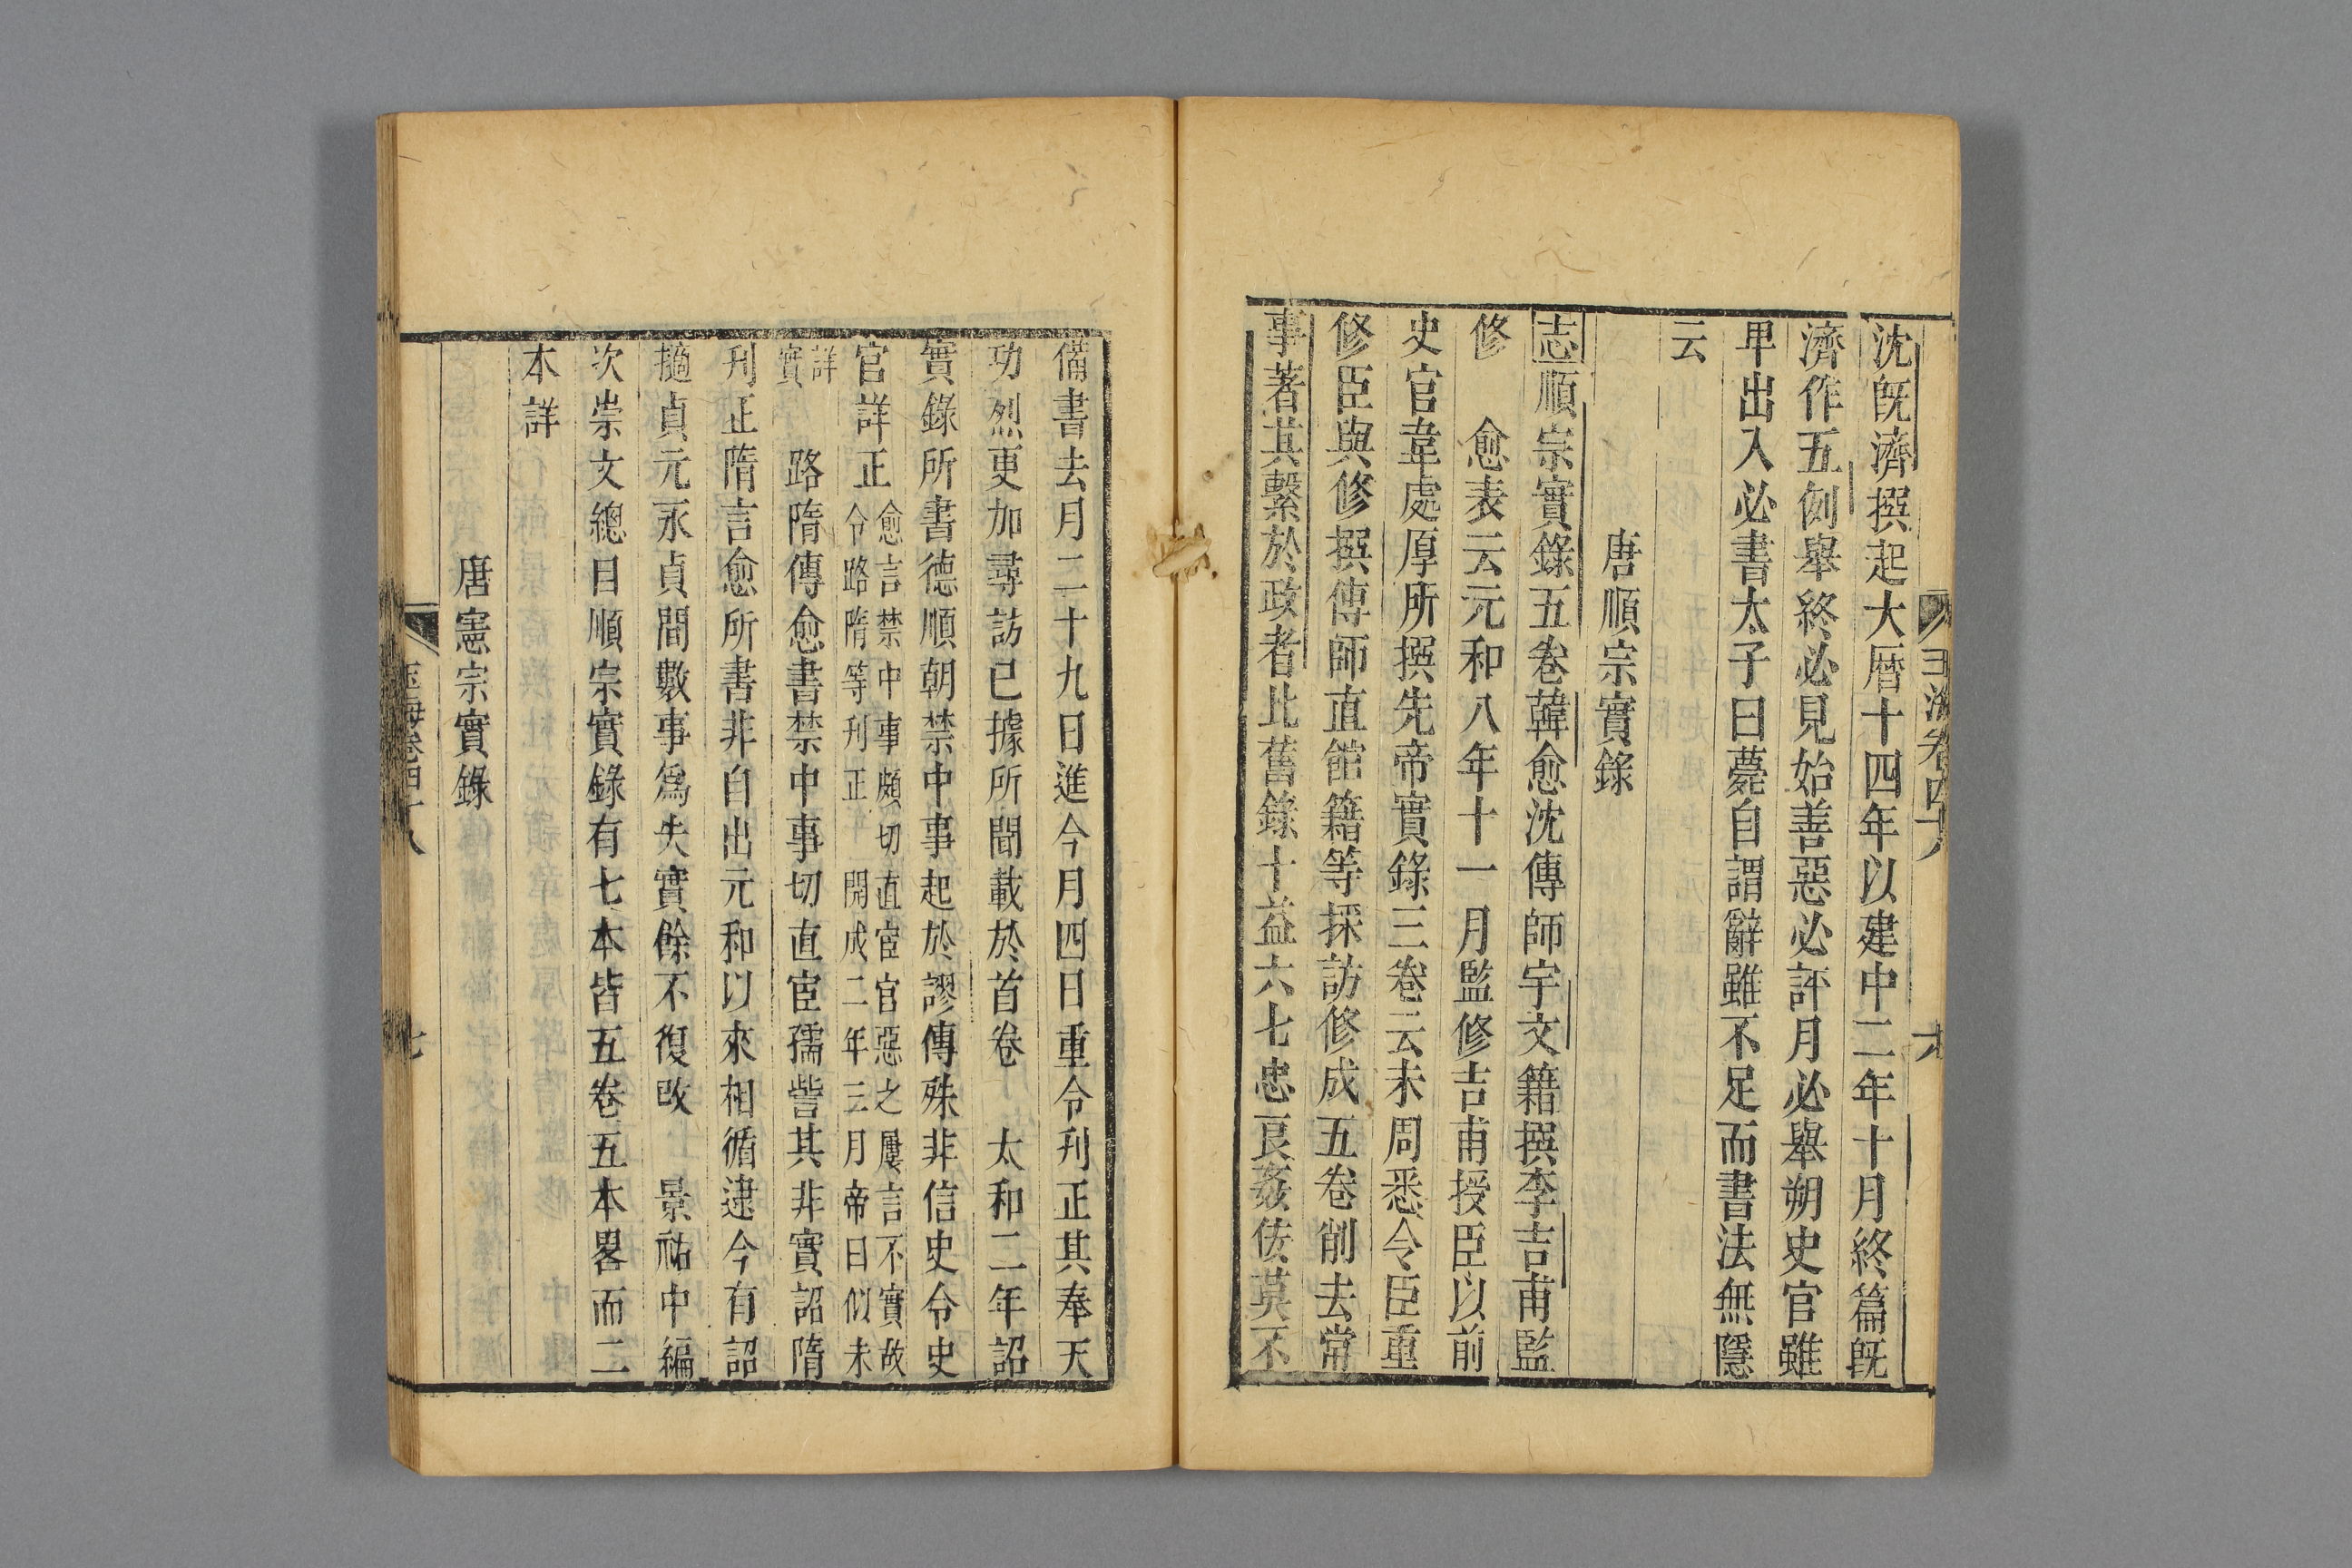 玉海卷四十八
六
沈旣濟撰起大曆十四年以建中二年十月終篇旣
濟作五例舉終必見始善惡必評月必舉朔史官雖
畢出入必書太子曰薨自謂辭雖不足而書法無隱
云
唐順宗實錄
志順宗實錄五卷韓愈沈傳師宇文籍撰李吉甫監
修 愈表云元和八年十一月監修吉甫授臣以前
史官韋處厚所撰先帝實錄三卷云未周悉令臣重
修臣與修撰傳師直館籍等採訪修成五卷削去常
事著其繫於政者比舊錄十益六七忠良姦佞莫不
備書去月二十九日進今月四日重令刋正其奉天
功烈更加尋訪已據所聞載於首卷 太和二年詔
實錄所書德順朝禁中事起於謬傳殊非信史令史
官詳正愈言禁中事頗切直宦官惡之屢言不實故
令路隋等刋正 開成二年三月帝曰似未
詳
實 路隋傳愈書禁中事切直宦孺訾其非實詔隋
刋正隋言愈所書非自出元和以來相循逮今有詔
擿貞元永貞間數事爲失實餘不復改 景祐中編
次崇文總目順宗實錄有七本皆五卷五本畧而二
本詳
唐憲宗實錄
玉海卷四十八
七